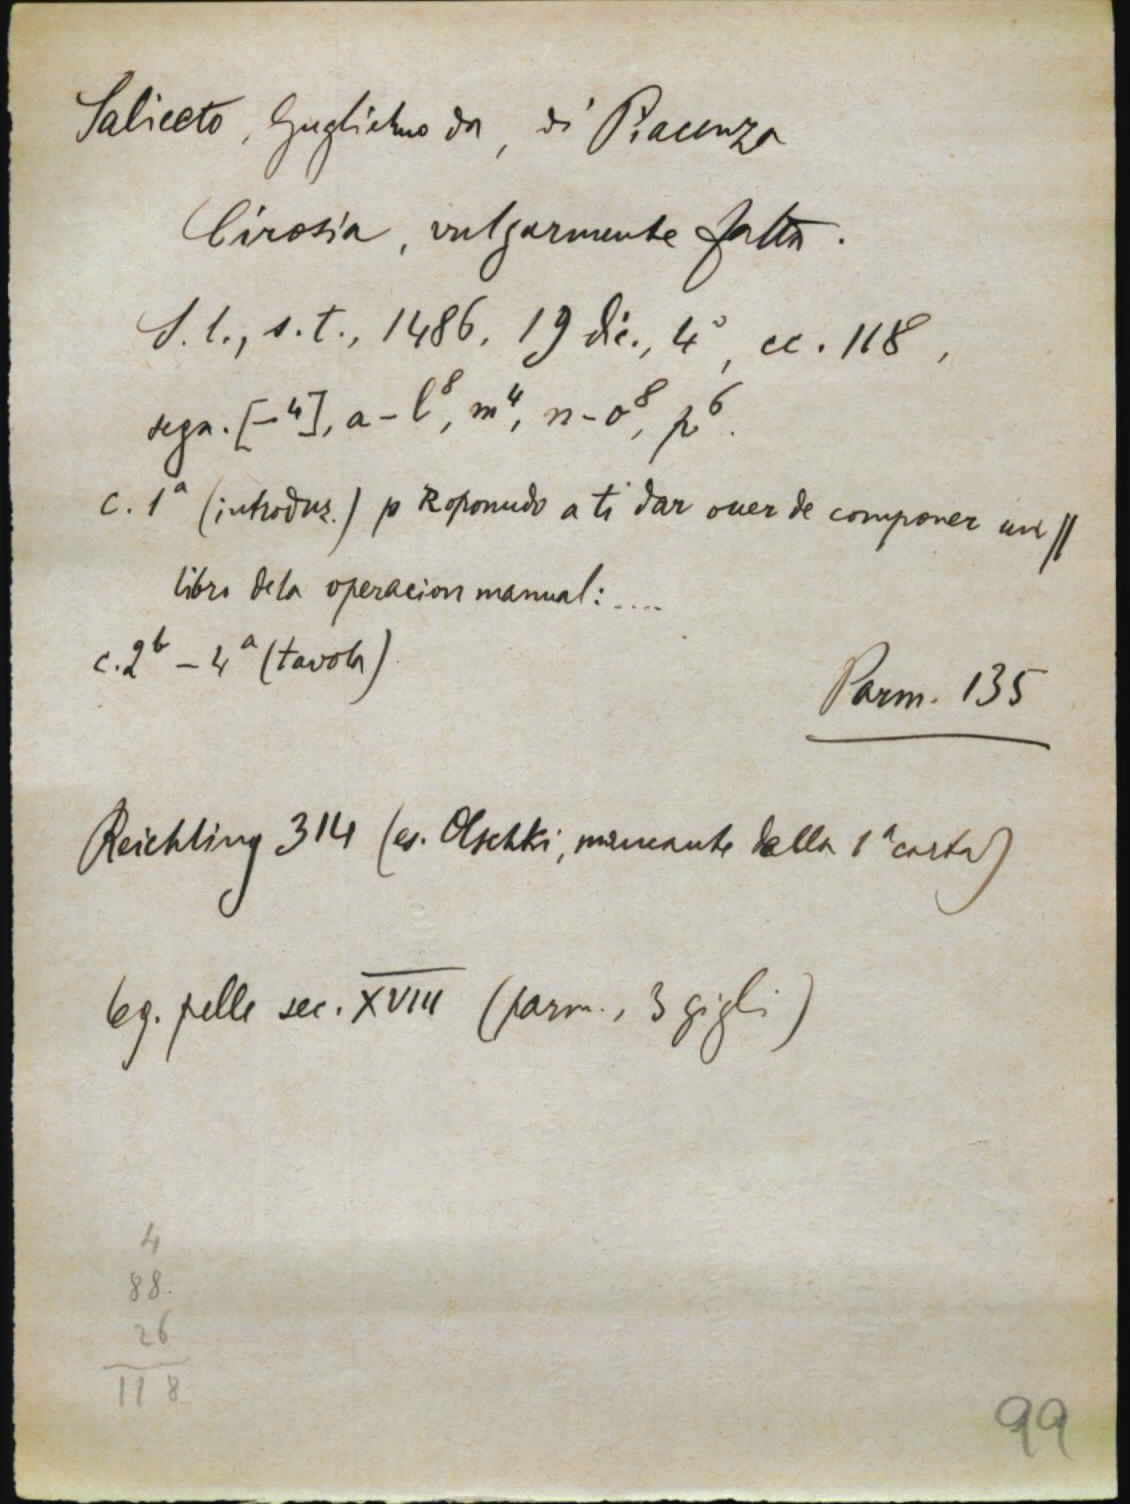 Saliceto, Guglielmo da, di Piacenza
Cirosia, vulgarmente fatta.
S. l., s. t., 1486, 19 dic., 4°, cc. 118,
segn. [-⁴], a-l⁸, m⁴, n-o⁸, p⁶.
c. 1ᵃ (introduz.) p Roponendo a ti dar ouer de componer un //
libro dela operacion manual: ....
c. 2ᵇ - 4ᵃ (tavola)
Parm. 135
Reichling 314 (es. Olschki, mancante della 1ᵃ carta)
leg. pelle sec. XVIII (parm., 3 gigli)
4
88.
26
118
99